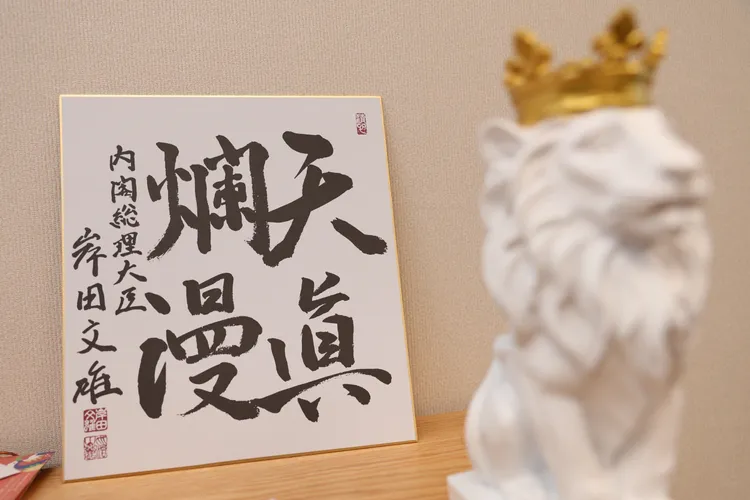 天眞
爛漫
内閣総理大臣
岸田文雄